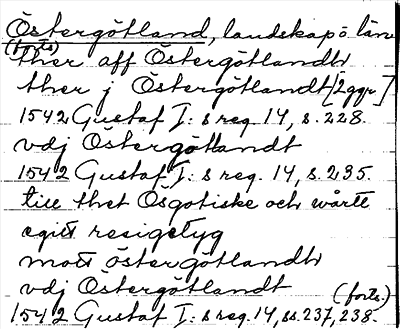 Östergötland, landskap o. län
(forts)
ther aff Östergötlandh
ther j Östergötlandt [2 ggr]
1542 Gustaf I:s reg. 14, s. 228.
vdj Östergötlandt
1542 Gustaf I:s reg. 14, s. 235.
till thet Ösgotiske och wårtt
egitt resigetyg
mott östergötlandh
vdj Östergötlandt (forts.)
1542 Gustaf I:s reg. 14, ss. 237, 238.